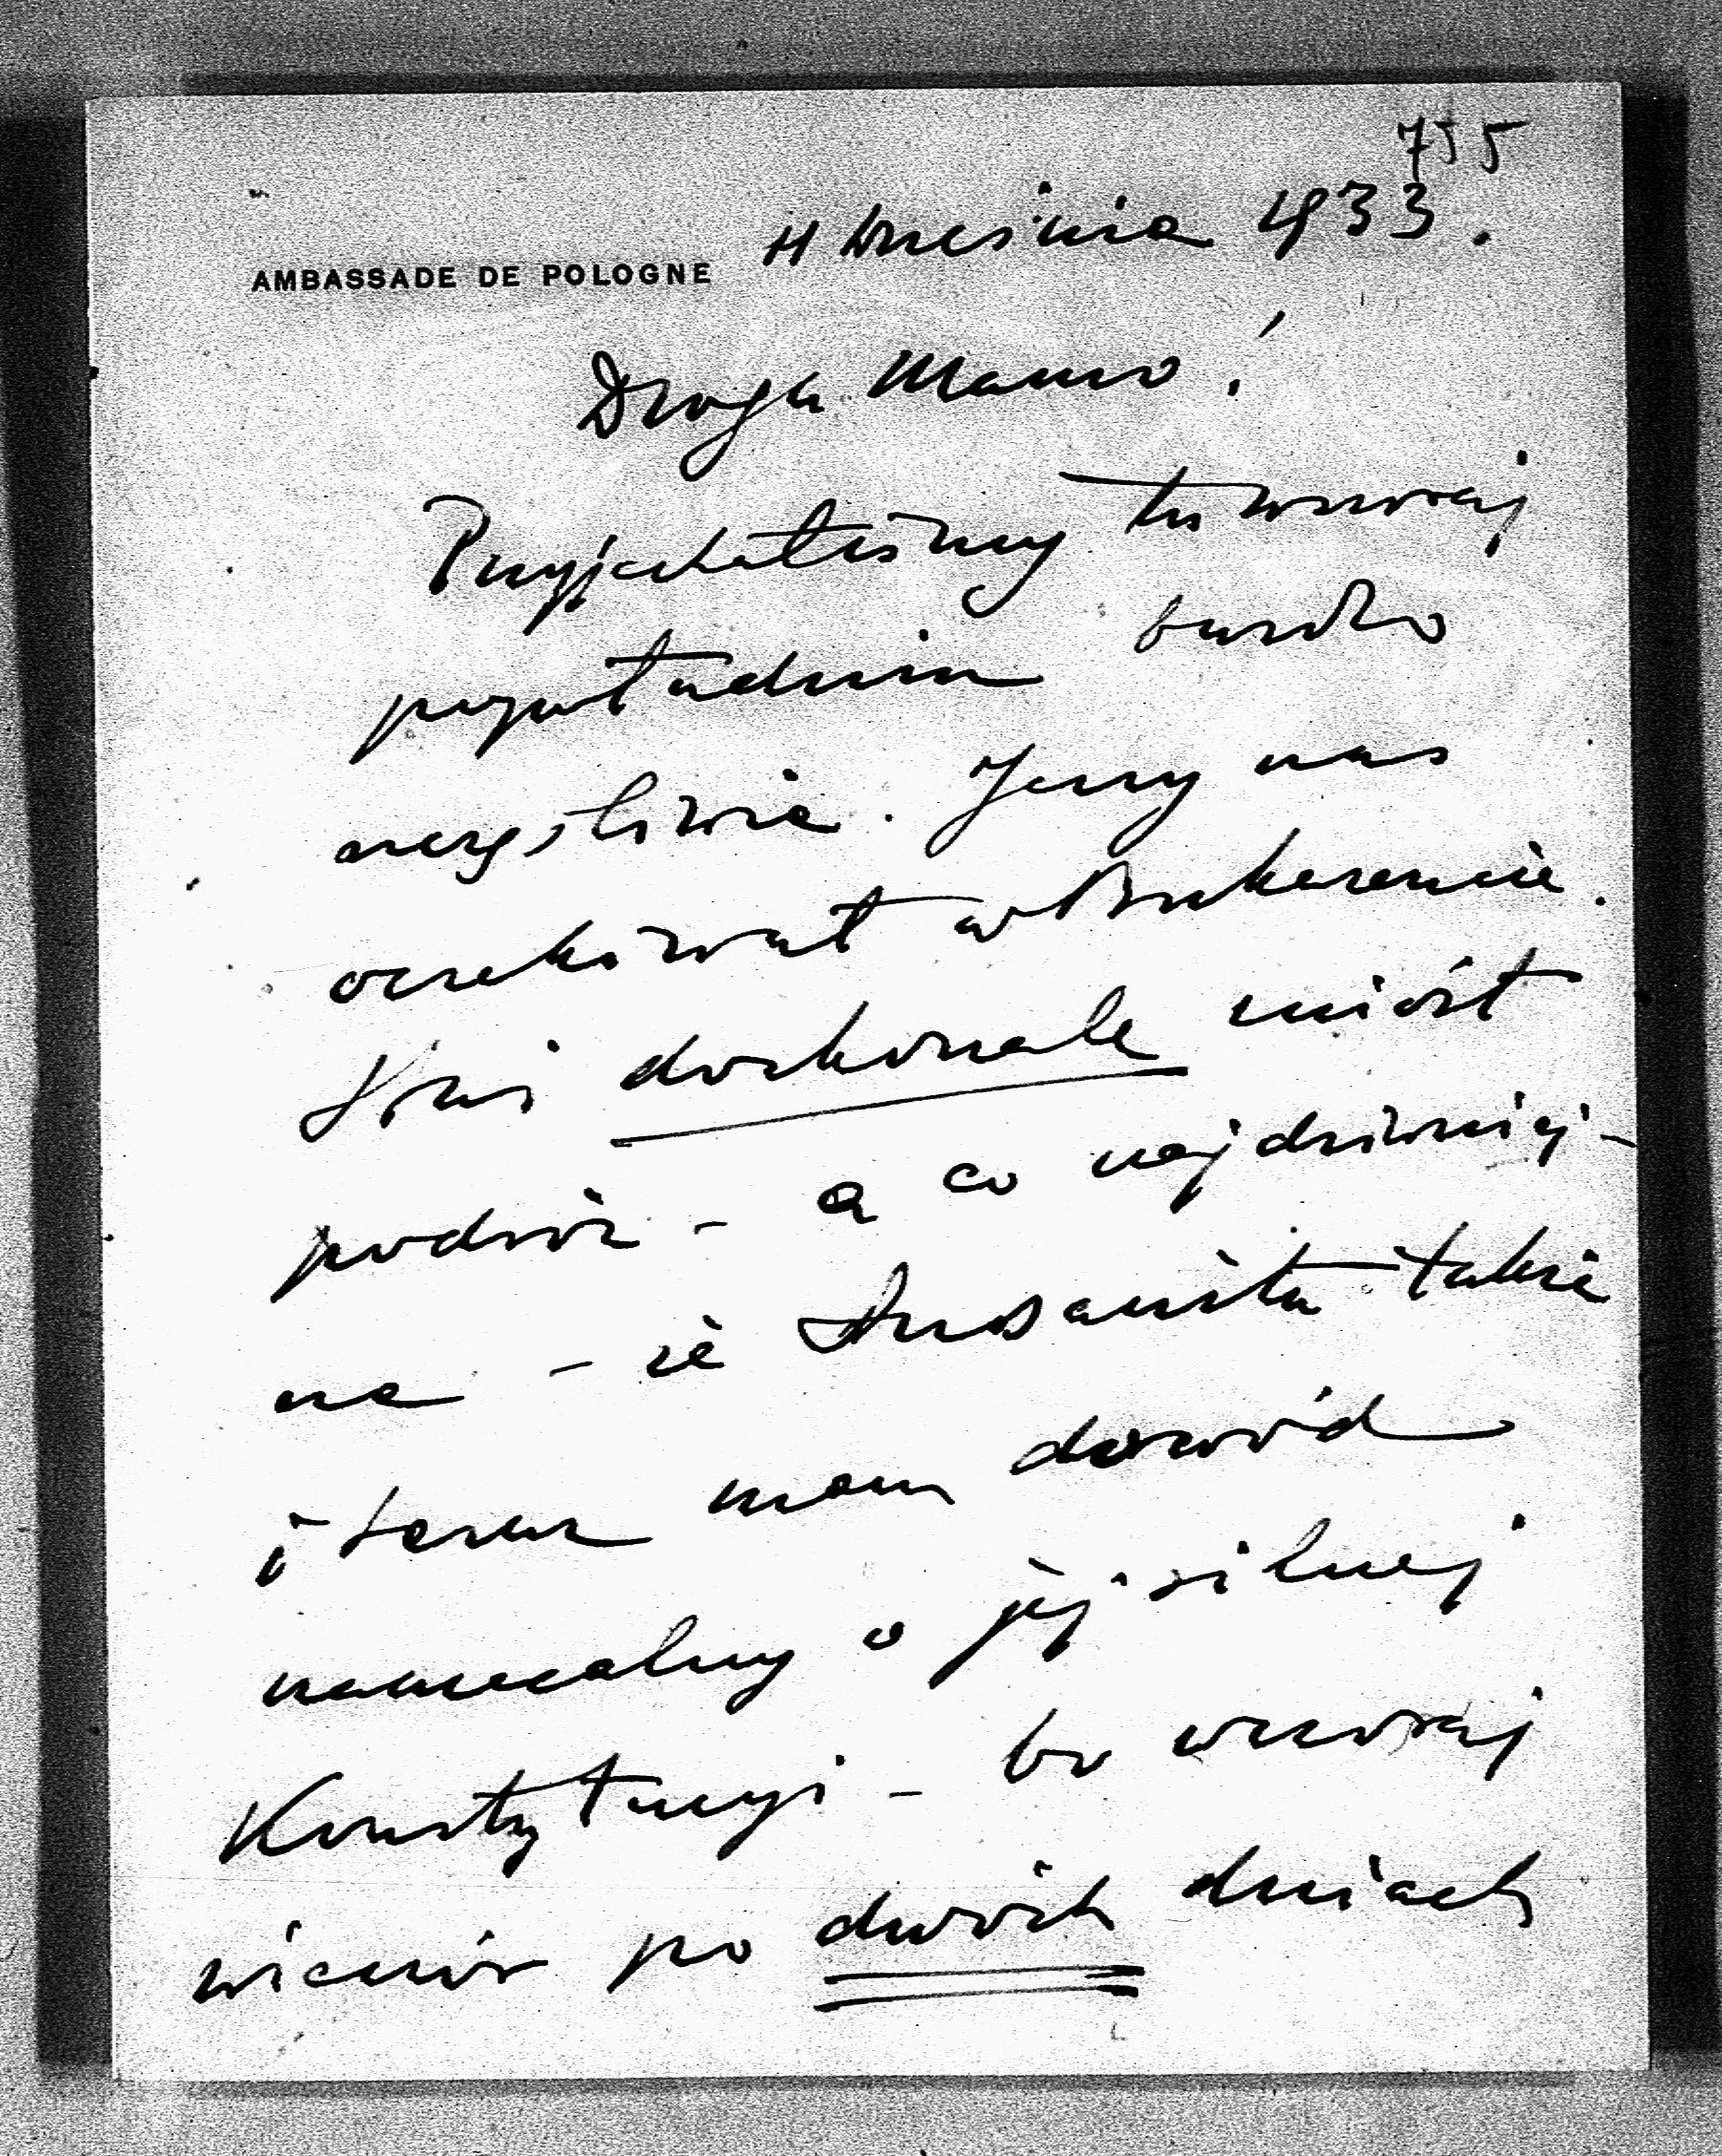 755
11 Września 1933.
AMBASSADE DE POLOGNE
Droga Mamo!
Przyjechaliśmy tu wczoraj
popołudniu bardzo
szczęśliwie. Jerzy nas
oczekiwał w Bukareszcie.
doskonale zniósł
podróż - a co najdziwniej-
sze - że także
i teraz mam dowód
namacalny o jej silnej
Konstytucyi - bo wczoraj
wieczór po dwóch dniach